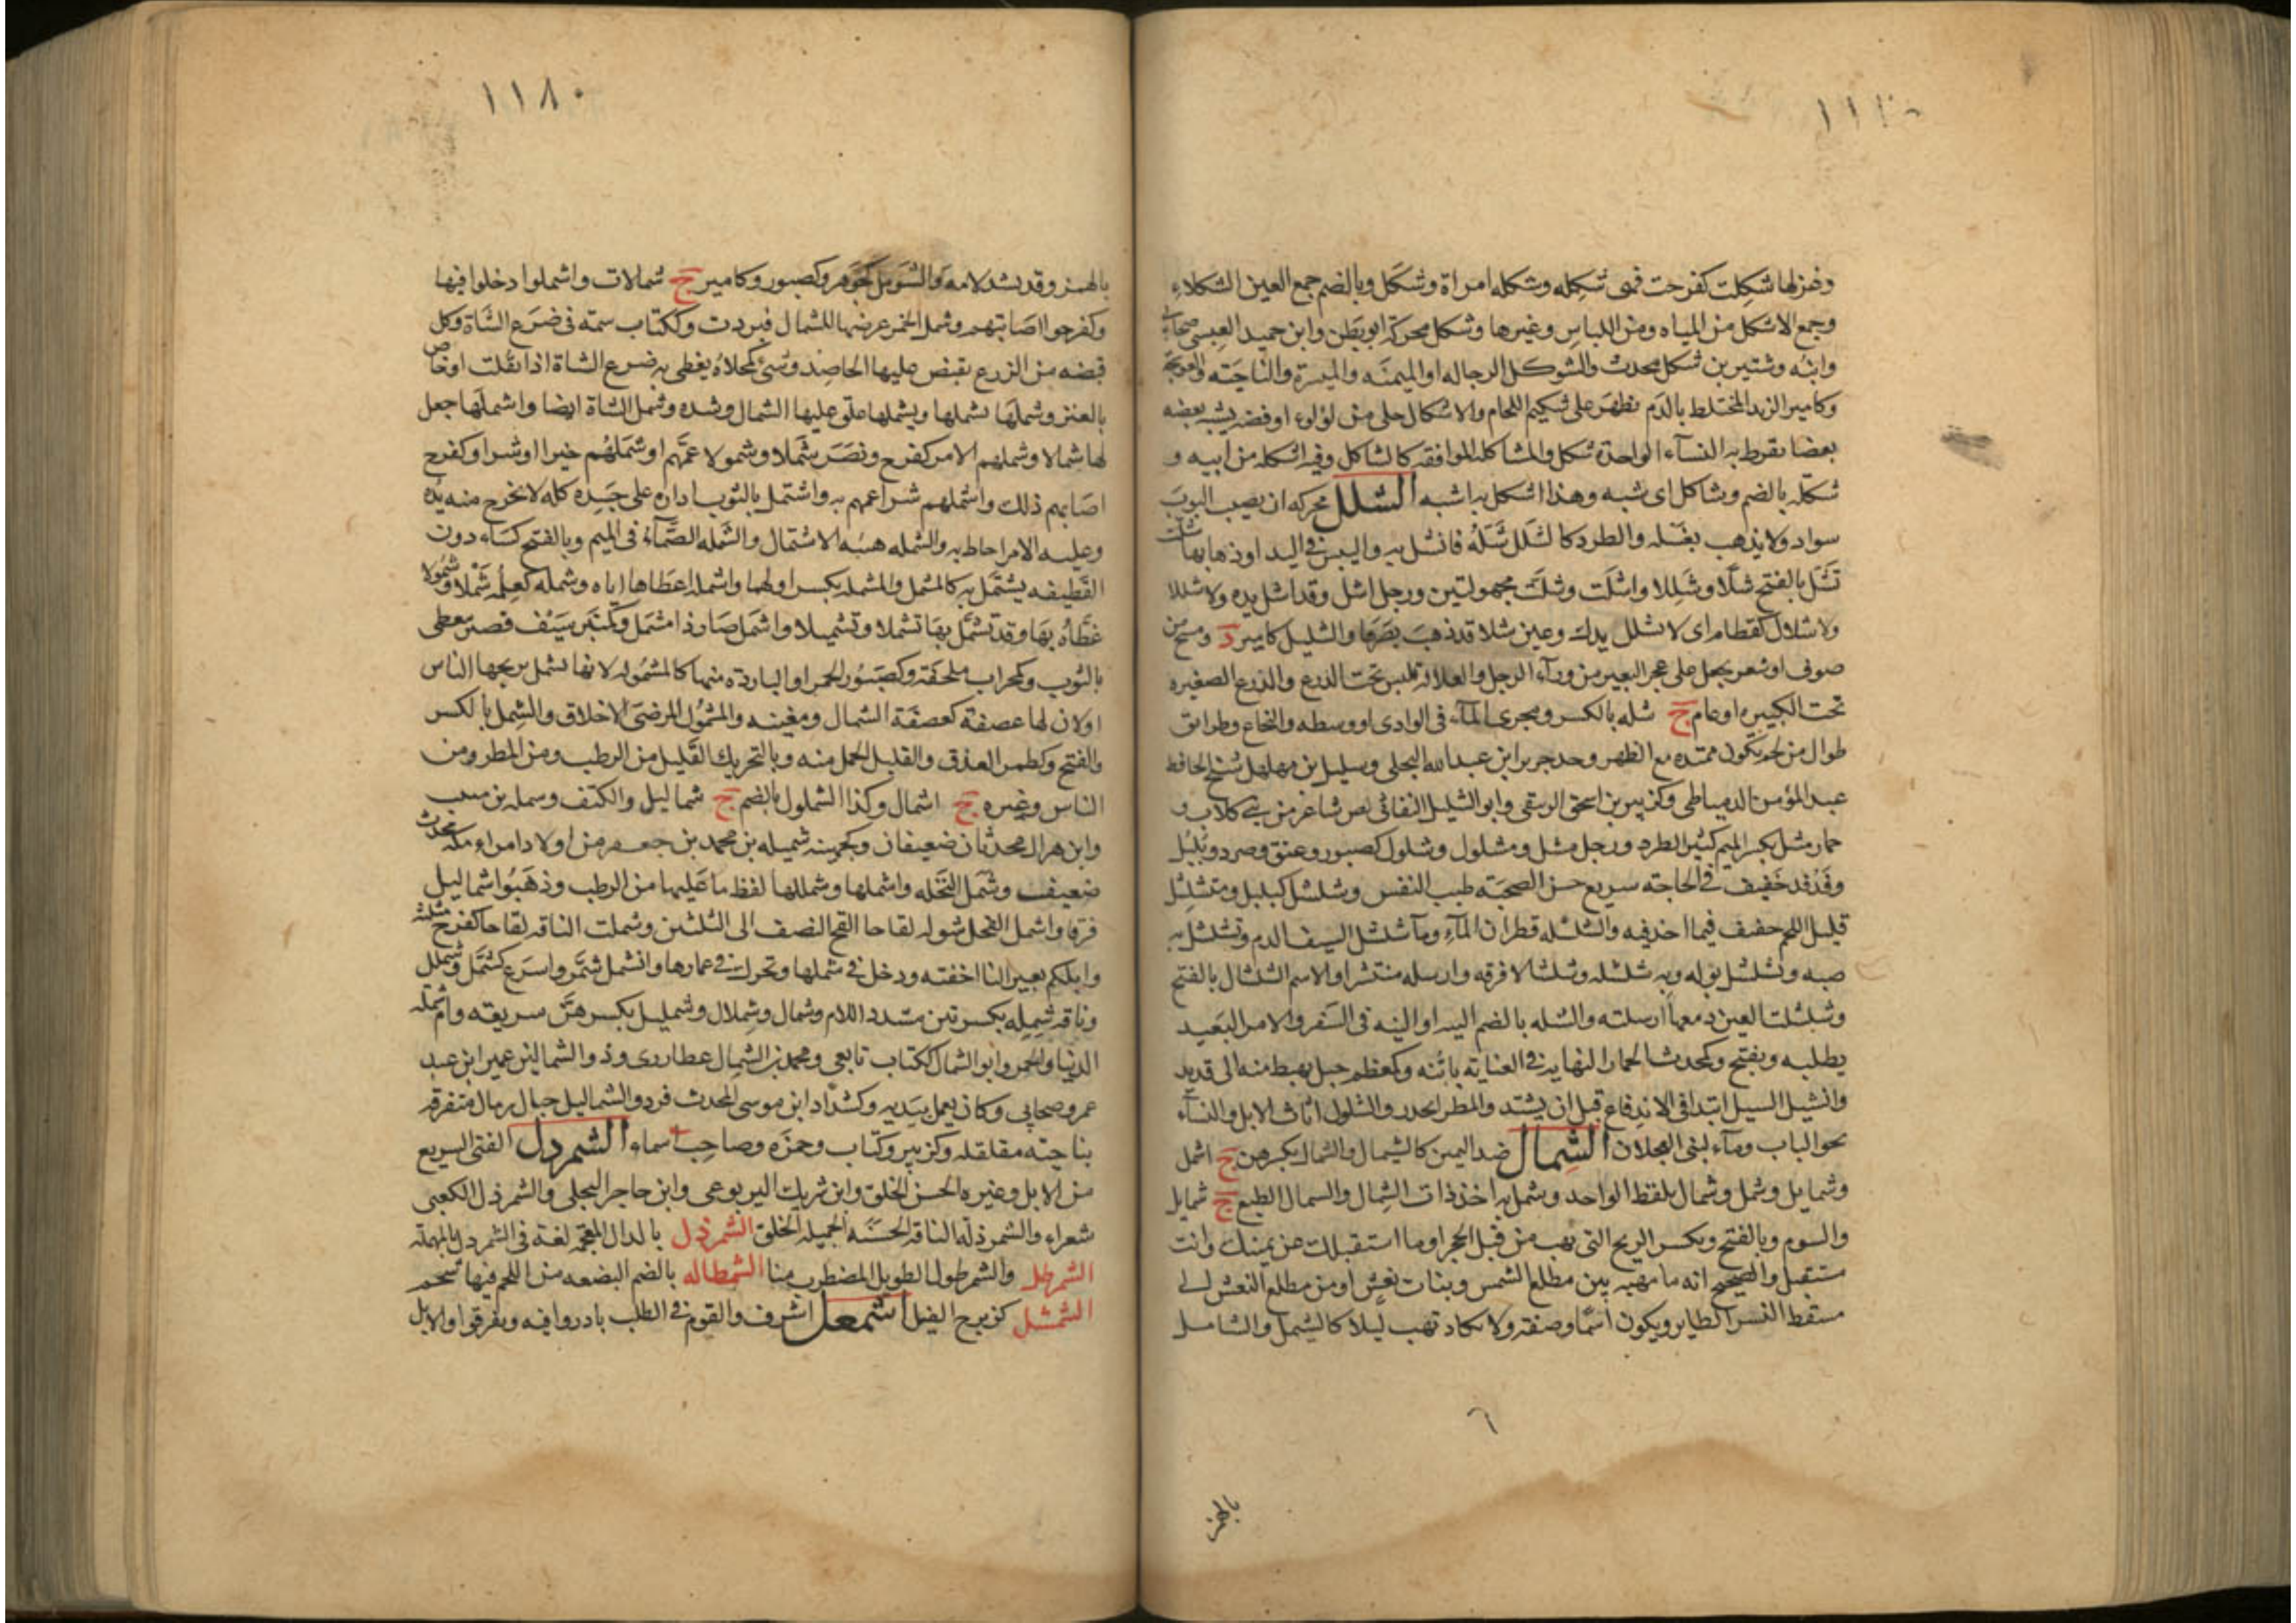 وغزلها شكلت كفرحت فهى شكله وشكله امراة وشكل وبالضم جمع العين الشكلاء
وجمع الاشكل من المياه ومن اللباس وغيرها وشكل محركة ابو بطن وابن حميد العبسى صحابى
وابنه وشتير بن شكل محدث والشوكل الرجاله او الميمنه والميسرة والناحيته والعوسجة
وكامير الزبد المختلط بالدم يظهر على شكيم اللجام والاشكال حلى من لولوء اوفضه يشبه بعضه
بعضا يقرط به النسآء الواحدة شكل والمشاكله الموافقه كالتشاكل وفيه اشكله من ابيه و
شكله بالضم وشاكل اى شبه وهذا اشكل به اشبه الشلل محركه ان يصيب الثوب
سواد ولا يذهب بغسله والطرد كالشلل شله فانشل به واليبس فى اليد او ذهابها شلت
تشل بالفتح شلا وشللا واشلت وشلت مجهولتين ورجل اشل وقد اشل يده ولا شللا
ولا شلال كقطام اى لا تشلل يدك وعين شلا قد ذهب بصرها والشليل كامير د ومسح من
صوف او شعر يجعل على عجز البعير من ورآء الرجل والغلالة تلبس تحت الدرع والدرع الصغيره
تحت الكبيره او عام ج شله بالكسر ومجرى المآء فى الوادى او وسطه والنخاع وطرائق
طوال من لحم يكون ممتده مع الظهر وجد جرير ابن عبد الله البجلى وسليل بن مهلهل شيخ الحافظ
عبد المؤمن الدمياطى وكزبير بن اسحق الزبيقى وابو الشليل النفاثى لص شاعر من بنى كلاب و
حمار مشل بكسر الميم كثير الطرد ورجل مشل ومشلول وشلول كصبور وعنق وصرد وبلبل
وفدفد خفيف فى الحاجته سريع حسن الصحبته طيب النفس وشلشل كبلبل ومتشلشل
قليل اللحم خفيف فيما اخذ فيه والشلشله قطران المآء ومآ شلشل السيف الدم وتشلشل به
صبه وشلشل بوله وبه شلشله وشلشالا فرقه وارسله منتشرا والاسم الشلشال بالفتح
وشلشلت العين دمعها ارسلته والشله بالضم اليسر او النيه فى السفر والامر البعيد
يطلبه ويفتح وكمحدث الحمار النهايه فى العنايته باتنه وكمعظم جبل يهبط منه الى قديد
وانشل السيل ابتدا فى الاندفاع قبل ان يشتد والمطر انحدر والشلول اناث الابل والنسآء
نحو الباب ومآء لبنى العجلان الشمال ضد اليمين كالشيمال والشمال بكسرهن ج اشمل
وشمايل وشمل وشمال بلفظ الواحد وشمل به اخذ ذات الشمال والسمال الطبع ج شمايل
والسوم وبالفتح وبكسر الريح التى تهب من قبل الحجر او ما استقبلك عن يمينك وانت
مستقبل والصحيح انه ما مهبه بين مطلع الشمس وبنات نعش او من مطلع النعش الى
مسقط النسر الطاير ويكون اسما وصفته ولا يكاد تهب ليلا كالشيمل والشامل
٦
بالهمز
١١٨٠
بالهمز وقد يشد لامه والشومل كجوهر وكصبور وكامير ج شمالات واشملوا دخلوا فيها
وكفرحوا اصابتهم وشمل الخمر عرضها للشمال فبردت وككتاب سمته فى ضرع الشاة وكل
قبضه من الزرع يقبض عليها الحاصد وشئ كمخلاة يغطى به ضرع الشاة اذا ثقلت او خاص
بالعنز وشملها يشملها ويشملها علق عليها الشمال وشده وشمل الشاة ايضا واشملها جعل
لها شمالا وشملهم الامر كفرح ونصر شملا وشمولا عمهم او شملهم خيرا او شرا وكفرح
اصابهم ذلك واشملهم شرا عمهم به واشتمل بالثوب اداره على جسده كله لا تخرج منه يده
وعليه الامر احاط به والشمله هيئه الاشتمال والشمله الصماء فى الميم وبالفتح كساء دون
القطيفه يشتمل به كالمشمل والمشمله بكسر اولهما واشمله اعطاها اياه وشمله كعلمه شملا وشمولا
غطاه بها وقد تشمل بها تشملا وتشميلا واشمل صار ذا مشمل وكمنبر سيف قصير يغطى
بالثوب وكمحراب ملحفته وكصبور الخمر او البارده منها كالمشموله لانها تشمل بريحها الناس
اولان لها عصفة كعصفة الشمال ومغينه والمشمول المرضى الاخلاق والشمل بالكسر
والفتح وكطمر العذق والقليل الحمل منه وبالتحريك القليل من الرطب ومن المطر ومن
الناس وغيره ج اشمال وكذا الشملول بالضم ج شماليل والكتف وسمله بن منيب
وابن هزال محدثان ضعيفان وكجهينه شميله بن محمد بن جعفر من اولاد امراء مكه محدث
ضعيف وشمل النخله واشملها وشمللها لفظ ما عليها من الرطب وذهبوا شماليل
فرقا واشمل الفحل شوله لقاحا القح النصف الى الثلثين وشملت الناقه لقاحا كفرح مثلثه
وابلكم بعيرا لنا اخفته ودخل فى شملها وتحرك فى غمارها وانشمل شمر واسرع كشمل وشملل
وناقه شمله بكسرتين مشدد اللام وشمال وشملال وشمليل بكسرهن سريعه وام شمله
الدنيا والخمر وابو الشمال ككتاب تابعى ومحمد بن الشمال عطاردى وذو الشمالين عمير ابن عبد
عمرو صحابى وكان يعمل بيديه وكشداد ابن موسى المحدث فرد والشماليل حبال رمال متفرقه
بناحيته مقلقله وكزبير وكتاب وحمزه وصاحب اسماء الشمردل الفتى السريع
من الابل وغيره الحسن الخلق وابن شريك اليربوعى وابن حاجر البجلى والشمردل الكعبى
شعراء والشمردله الناقه الحسنه الجميله الخلق الشمرذل بالدال المعجمه لغة فى الشمردل بالمهملة
الشمرطل والشمرطول الطويل المضطرب منا الشمطاله بالضم البضعه من اللحم فيها شحم
الشمشل كزبرج الفيل اشمعل اشرف والقوم فى الطلب بادروا فيه وتفرقوا والابل